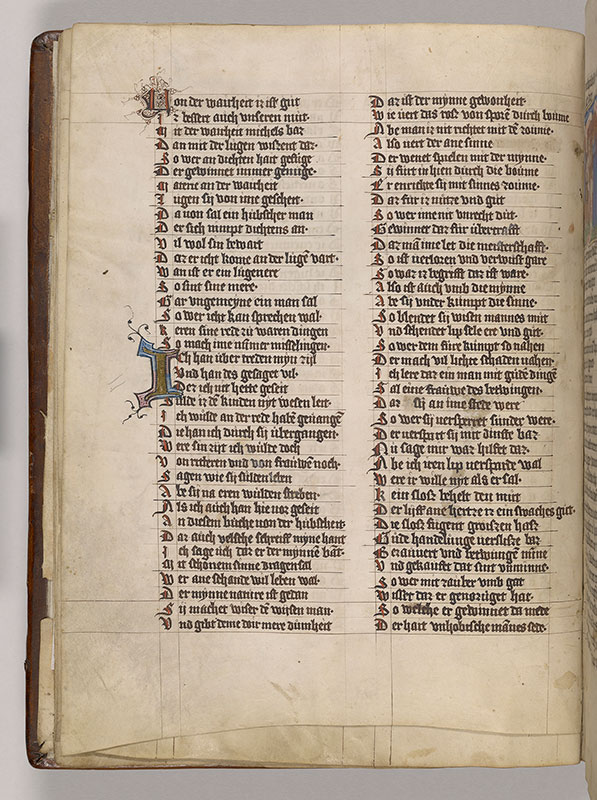 Von der warheit iz ist gut
Iz bessert auch vnseren mut
Mit der warheit michels baz
Dan mit der lugen wizzent daz
So wer an dichten hait gefuge
Der gewinnet immer genuge
Materie an der warheit
Lugen sij von ime gescheit
Da von sal ein hubscher man
Der sich nimpt dichtens an
Vil wol sin bewart
Daz er icht kome an der lugē vart
Wan ist er ein lugenere
So sint sine mere
Gar vngemeyne ein man sal
So wer icht kan sprechen wal
Keren sine rede zu waren dingen
So mach ime nūmer misselingen
Ich han uber treden myn zijl
Vnd han des gesaget vil
Des ich nit hette geseit
Solde iz dē kinden nyt wesen leit
Ich wulde an der rede habē geuangē
Die han ich durch sij ubergangen
Were sin zijt ich wulde doch
Von ritteren vnd von frauwē noch
Sagen wie sij sulden leben
Abe sij na eren wulden streben
Als ich auch han hie vor geseit
An diesem buche von der hubscheit
Daz auch velsche schreiff myne hant
Ich sage uch daz er der mynnē bāt
Mit schonem sinne dragen sal
Wer ane schande wil leben wal
Der mynne nature ist gedan
Sij machet wiser dē wijsen man
Vnd gibt deme doir mere dumheit
Daz ist der mynne gewonheit
Wie uert daz ros von sporē durch boume
Abe man iz nit richtet mit dē zoume
Also uert der ane sinne
Der wenet spielen mit der mynne
Sij fürt in hien durch die boume
Er enrichte sij mit sinnes zoume
Daz für iz nutze vnd gut
So wer ime nit vnrecht dut
Gewinnet daz für ubercrafft
Daz mā ime let die meisterschafft
So ist uerloren vnd verwüst gare
So waz iz begrifft daz ist ware
Also ist auch vmb die mynne
Abe sij vnder kumpt die sinne
So blendet sij wisen mannes mut
Vnd schendet lip sele ere vnd gut
So wer dem füre kumpt so nahen
Der mach vil lichte schaden vahen
Ich lere daz ein man mit gūdē dingē
Sal eine frauwe des betwingen
Daz sij an ime stede were
So wer sij uersperret sunder were
Der uerspart sij mit dinste baz
Nu sage mir waz hilfft daz
Abe ich iren lip uersparde wal
Were ir wille nyt als er sal
Kein sloß behelt den mut
Der lijff ane hertze iz ein swaches gūt
Die sloß fugent groiszen hasz
Gude handelunge uersliße baz
Gezauuert vnd betwungen mīne
Vnd gekaufft dat sint vnminne
So wer mit zauber vmb gat
Wisset daz er genozuget hat
So welche er gewinnet da mede
Der hait vnhobische māues sede